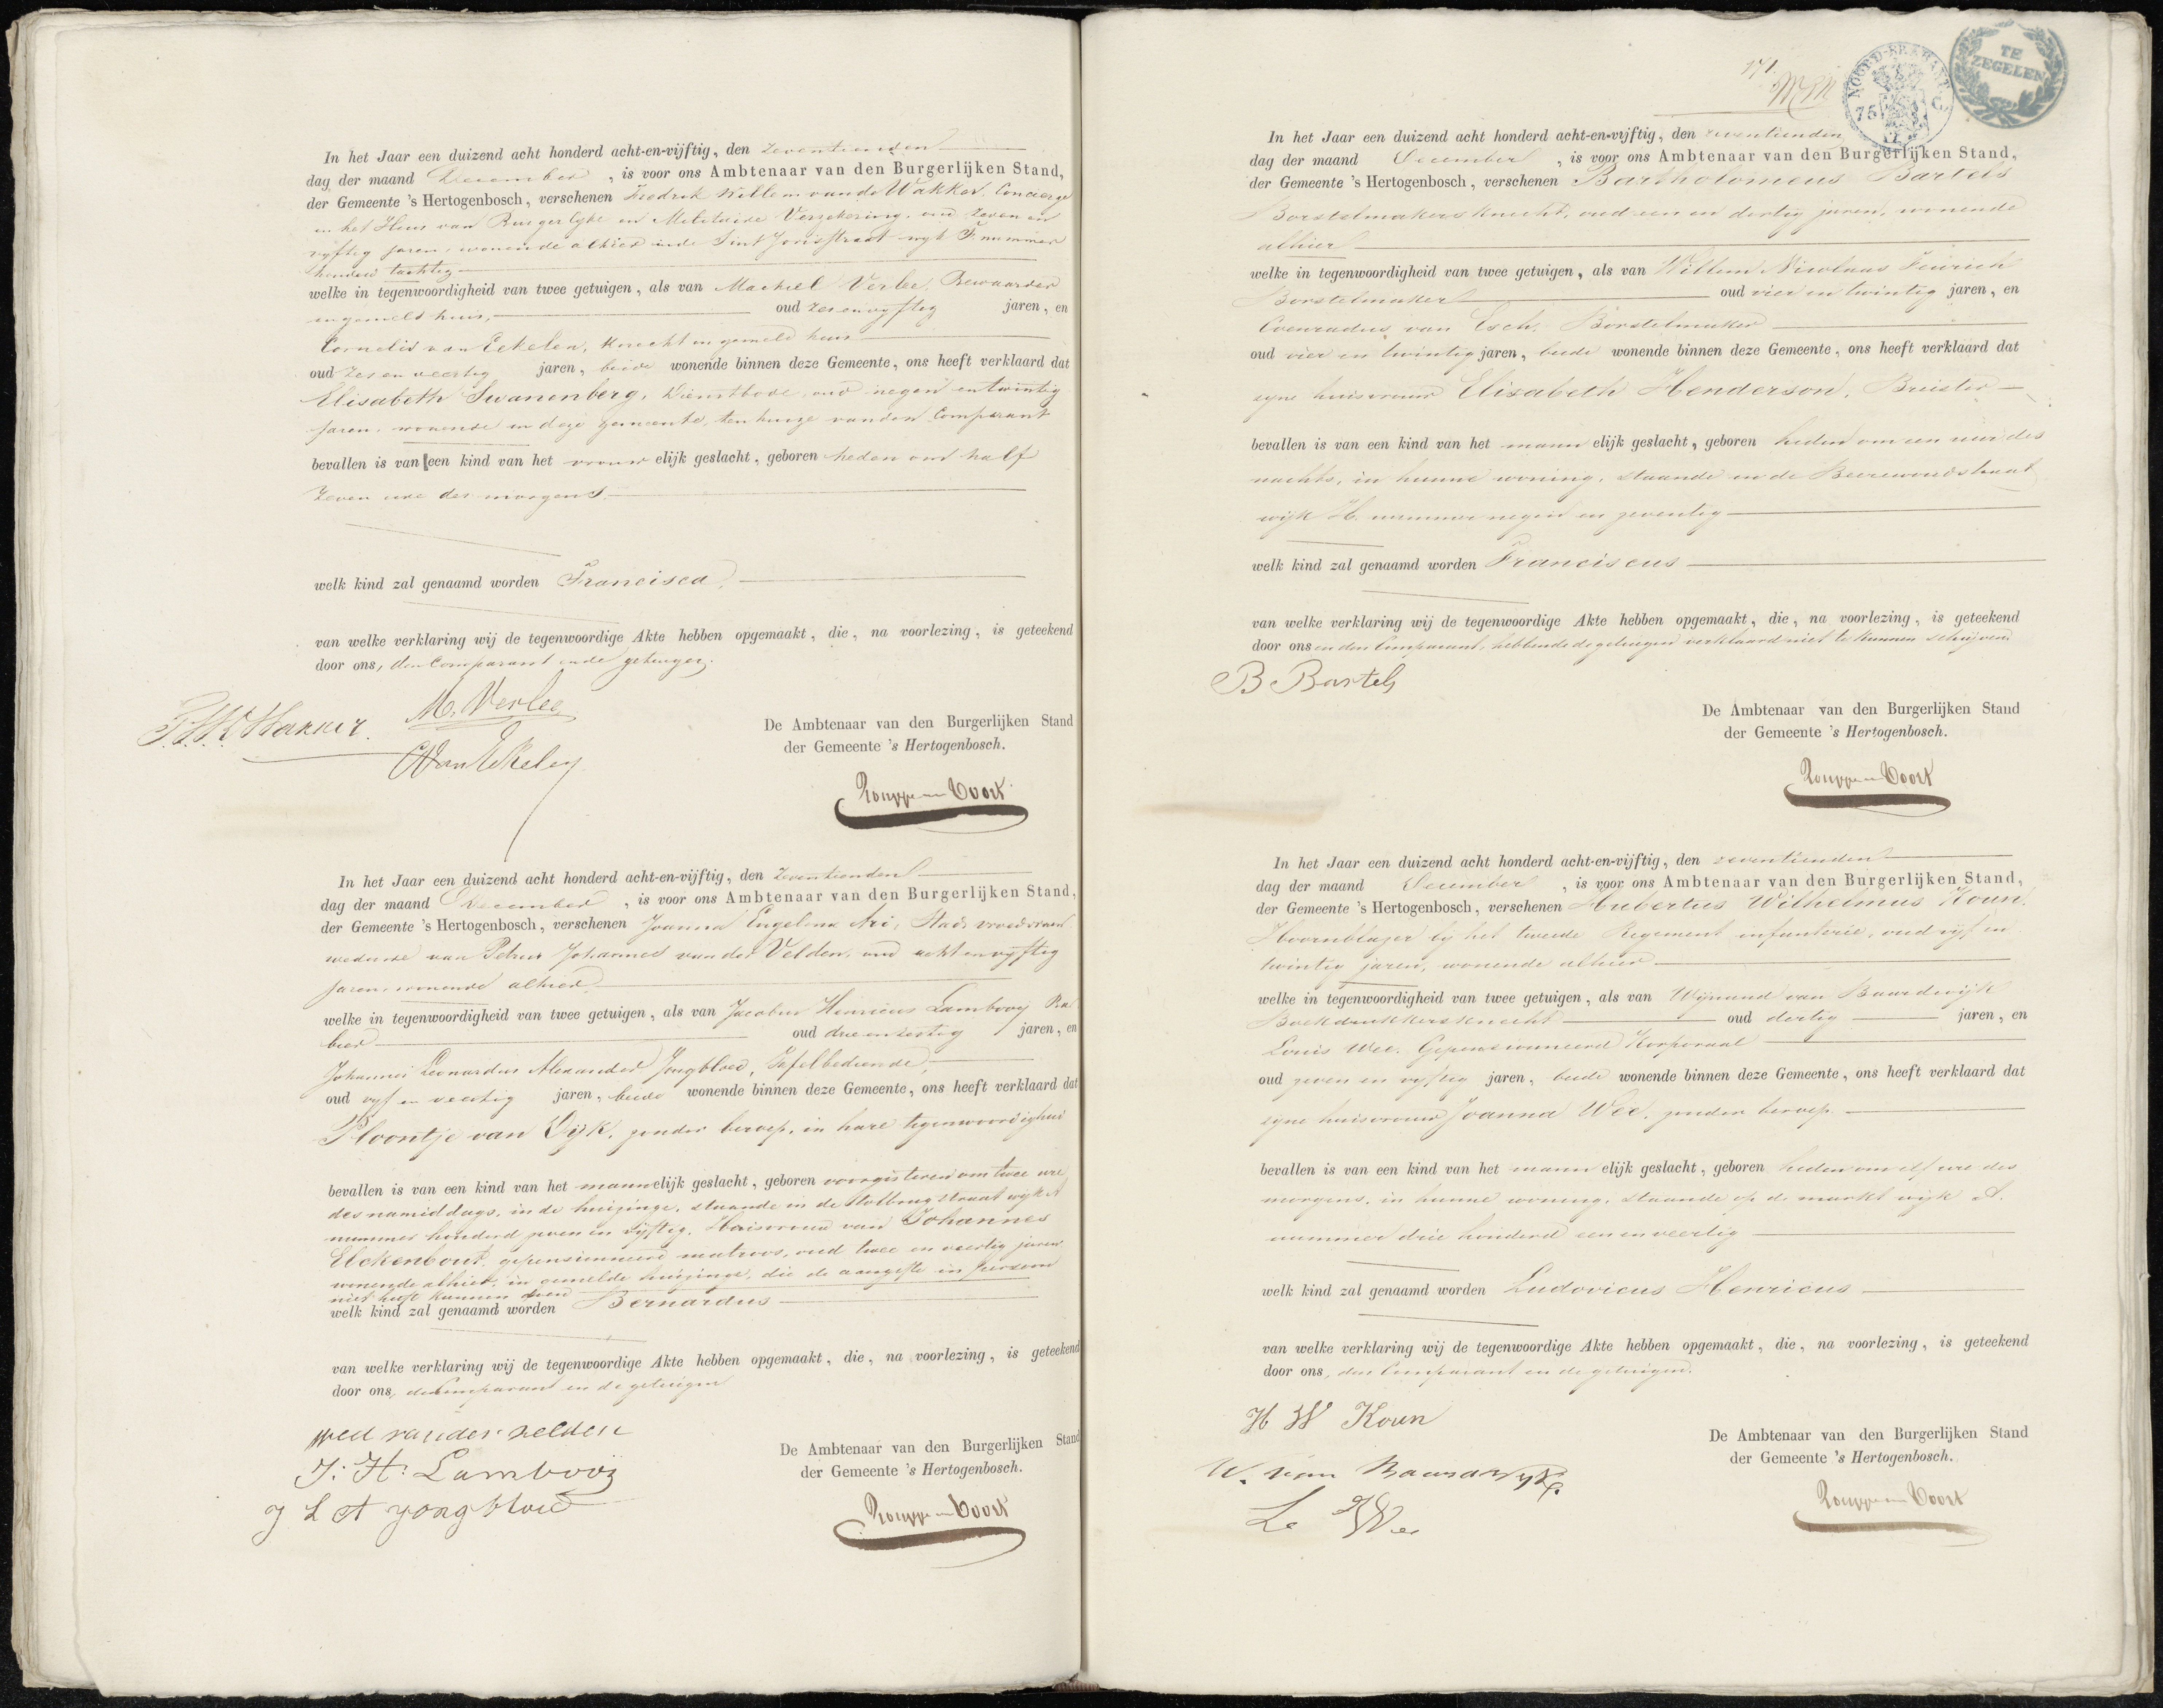 In het Jaar een duizend acht honderd acht-en-vijftig, den zeventienden
dag der maand December, is voor ons Ambtenaar van den Burgerlijken Stand,
der Gemeente 's Hertogenbosch, verschenen Fredrik Willem van de Wakker, Concierge
in het Huis van Burgerlijke en Militaire Verzekering, oud zeven en
vyftig jaren, wonende alhier in de Sint Jorisstraat wyk F. nummer
honderd tachtig
welke in tegenwoordigheid van twee getuigen, als van Machiel Verlee, Bewaarder
in gemeld huis, oud zesenvyftig jaren, en
Cornelis van Eekelen, knecht in gemeld huis
oud zes en veertig jaren, beide wonende binnen deze Gemeente, ons heeft verklaard dat
Elisabeth Swanenberg, Dienstbode, oud negen en twintig
jaren, wonende in deze gemeente, ten huize van den Comparant
bevallen is van een kind van het vrouwelijk geslacht, geboren heden om half
zeven ure des morgens
welk kind zal genaamd worden Francisca,
van welke verklaring wij de tegenwoordige Akte hebben opgemaakt, die, na voorlezing, is geteekend
door ons, den Comparant en de getuigen.
M. Verlee
De Ambtenaar van den Burgerlijken Stand
der Gemeente 's Hertogenbosch.
In het Jaar een duizend acht honderd acht-en-vijftig, den zeventienden
dag der maand December, is voor ons Ambtenaar van den Burgerlijken Stand,
der Gemeente 's Hertogenbosch, verschenen Joanna Engelina Ari, Stads vroedvrouw
weduwe van Petrus Johannes van der Velden, oud acht en vyftig
jaren, wonende alhier
welke in tegenwoordigheid van twee getuigen, als van Jacobus Henricus Lambooy
oud jaren, en
Johannes Leonardus Alexander Jongbloed, Tafelbediende,
oud vyf en veertig jaren, beide wonende binnen deze Gemeente, ons heeft verklaard dat
Ploontje van Dijk, zonder beroep, in hare tegenwoordigheid
bevallen is van een kind van het mannelijk geslacht, geboren voorgisteren om twee ure
des namiddags, in de huizinge, staande in de Tolbrugstraat wijk A
nummer honderd zeven en vijftig, Huisvrouw van Johannes
Elckenbout, gepensioneerd matroos, oud twee en veertig jaren
wonende alhier, in gemelde huizinge, die de aangifte in persoon
niet heeft kunnen doen
welk kind zal genaamd worden Bernardus
van welke verklaring wij de tegenwoordige Akte hebben opgemaakt, die, na voorlezing, is geteekend
door ons, de Comparant en de getuigen
wed van der velden
J: H: Lambooij
J L A Jongbloed
De Ambtenaar van den Burgerlijken Stand
der Gemeente 's Hertogenbosch.
171.
NOORD-BRABANT
75 C
TE
ZEGELEN
In het Jaar een duizend acht honderd acht-en-vijftig, den zeventienden
dag der maand December, is voor ons Ambtenaar van den Burgerlijken Stand,
der Gemeente 's Hertogenbosch, verschenen Bartholomeus Bartels
Borstelmakersknecht, oud een en dertig jaren, wonende
alhier
welke in tegenwoordigheid van twee getuigen, als van Willem Nicolaas
Borstelmaker oud vier en twintig jaren, en
Coenradus van Esch, Borstelmaker
oud vier en twintig jaren, beide wonende binnen deze Gemeente, ons heeft verklaard dat
zyne huisvrouw Elisabeth Henderson, Breister
bevallen is van een kind van het mannelijk geslacht, geboren heden om een uur des
nachts, in hunne woning, staande in de Beerewoudstraat
wijk H. nummer negen en zeventig
welk kind zal genaamd worden Franciscus
van welke verklaring wij de tegenwoordige Akte hebben opgemaakt, die, na voorlezing, is geteekend
door ons en den Comparant, hebbende de getuigen verklaard niet te kunnen schrijven.
B Bartels
De Ambtenaar van den Burgerlijken Stand
der Gemeente 's Hertogenbosch.
In het Jaar een duizend acht honderd acht-en-vijftig, den zeventienden
dag der maand December, is voor ons Ambtenaar van den Burgerlijken Stand,
der Gemeente 's Hertogenbosch, verschenen Hubertus Wilhelmus Koun,
Hoornblazer by het tweede Regiment infanterie, oud vijf en
twintig jaren, wonende alhier
welke in tegenwoordigheid van twee getuigen, als van Wijnand van Baardwijk
Boekdrukkersknecht oud dertig jaren, en
Louis Wee, Gepensioneerd Korporaal
oud zeven en vyftig jaren, beide wonende binnen deze Gemeente, ons heeft verklaard dat
zyne huisvrouw Joanna Wee, zonder beroep
bevallen is van een kind van het mannelijk geslacht, geboren heden om elf ure des
morgens, in hunne woning, staande op de markt wijk A.
nummer drie honderd een en veertig
welk kind zal genaamd worden Ludovicus Henricus
van welke verklaring wij de tegenwoordige Akte hebben opgemaakt, die, na voorlezing, is geteekend
door ons, den Comparant en de getuigen.
H W Koun
W. van Baardwyk
L Wee
De Ambtenaar van den Burgerlijken Stand
der Gemeente 's Hertogenbosch.